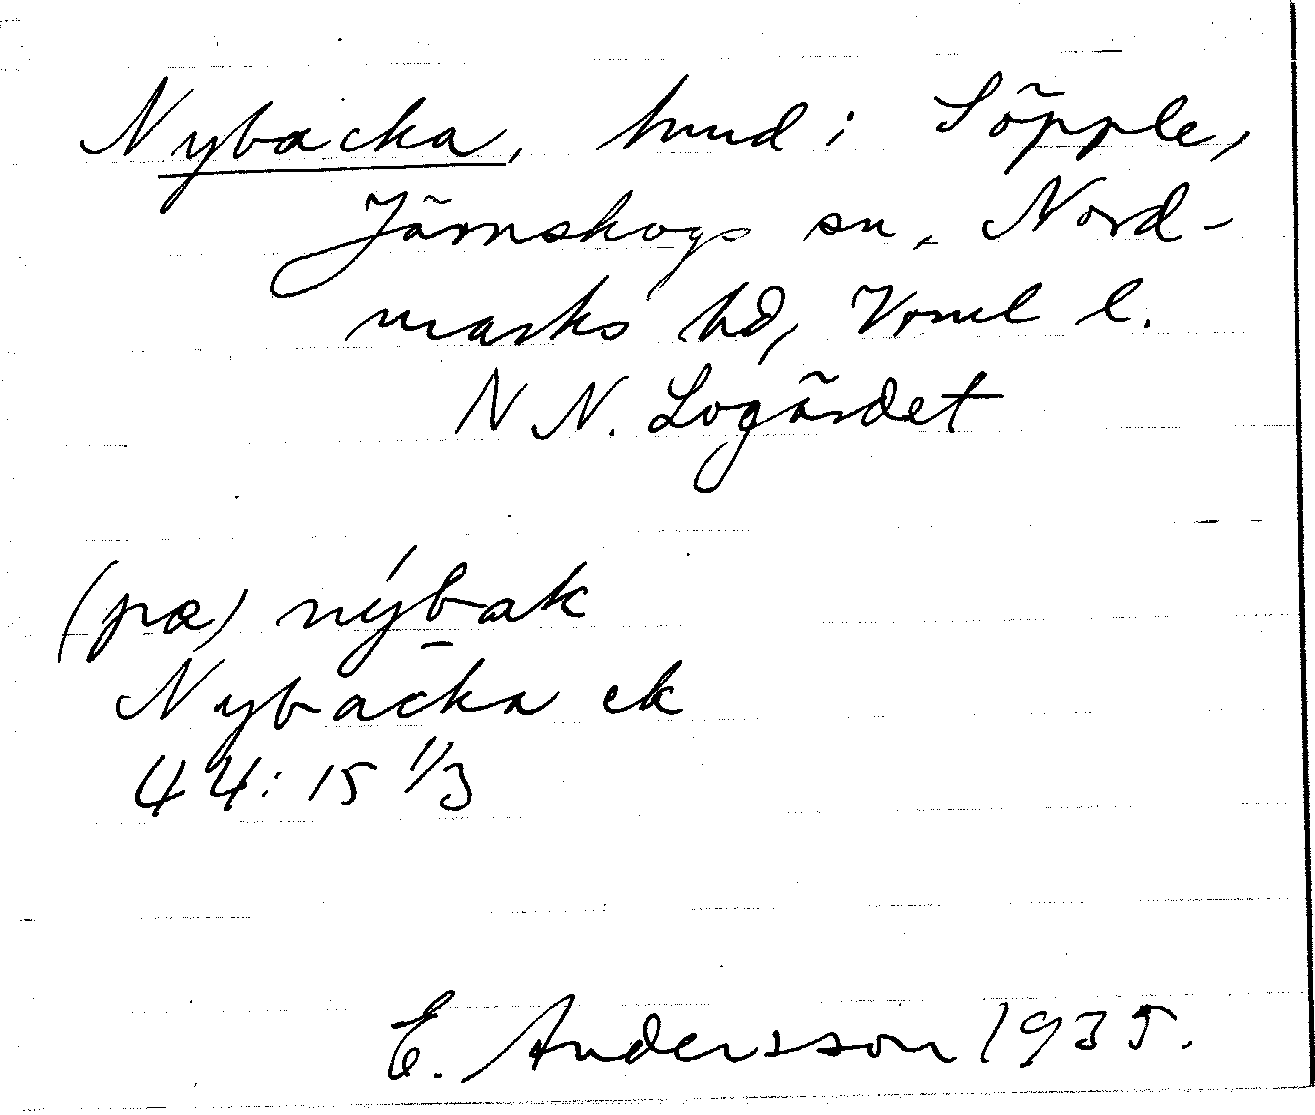 Nybacka, hmd i Söpple,
Järnskogs sn, Nord-
marks hd, Vrml l.
N N. Logärdet
(pæ) nýbak
Nybacka ek
44: 15 1/3
E. Andersson 1935.